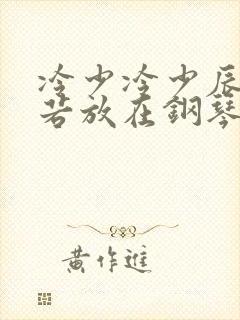 冷少冷少辰
若放在鋼琴
黄作進